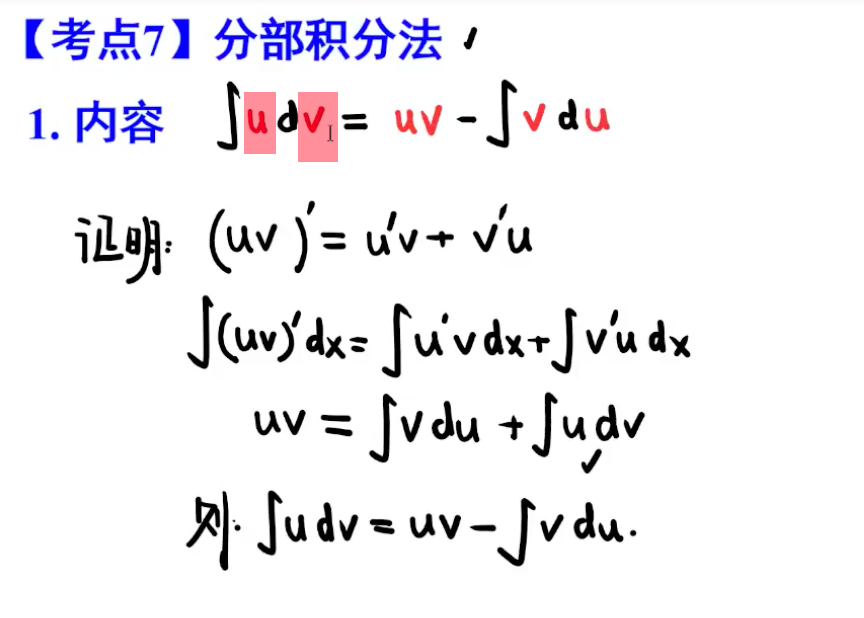 【考点7】分部积分法
1. 内容 ∫udv = uv - ∫vdu
证明: (uv)' = u'v + v'u
∫(uv)'dx = ∫u'vdx + ∫v'udx
uv = ∫vdu + ∫udv ✓
则: ∫udv = uv - ∫vdu.